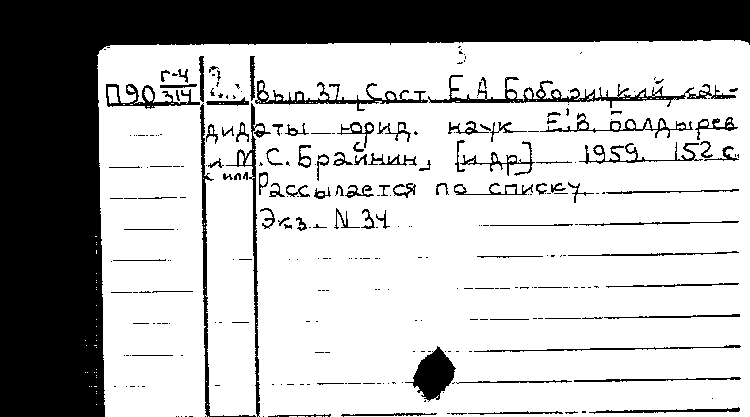 3
П90 Г-4/314 Вып. 37. [Сост. Е.А. Боборицкий, кан-
дидаты юрид. наук Е.В. Болдырев
и М.С. Брайнин, [и др] 1959. 152 с.
с илл. Рассылается по списку.
Экз. N 34